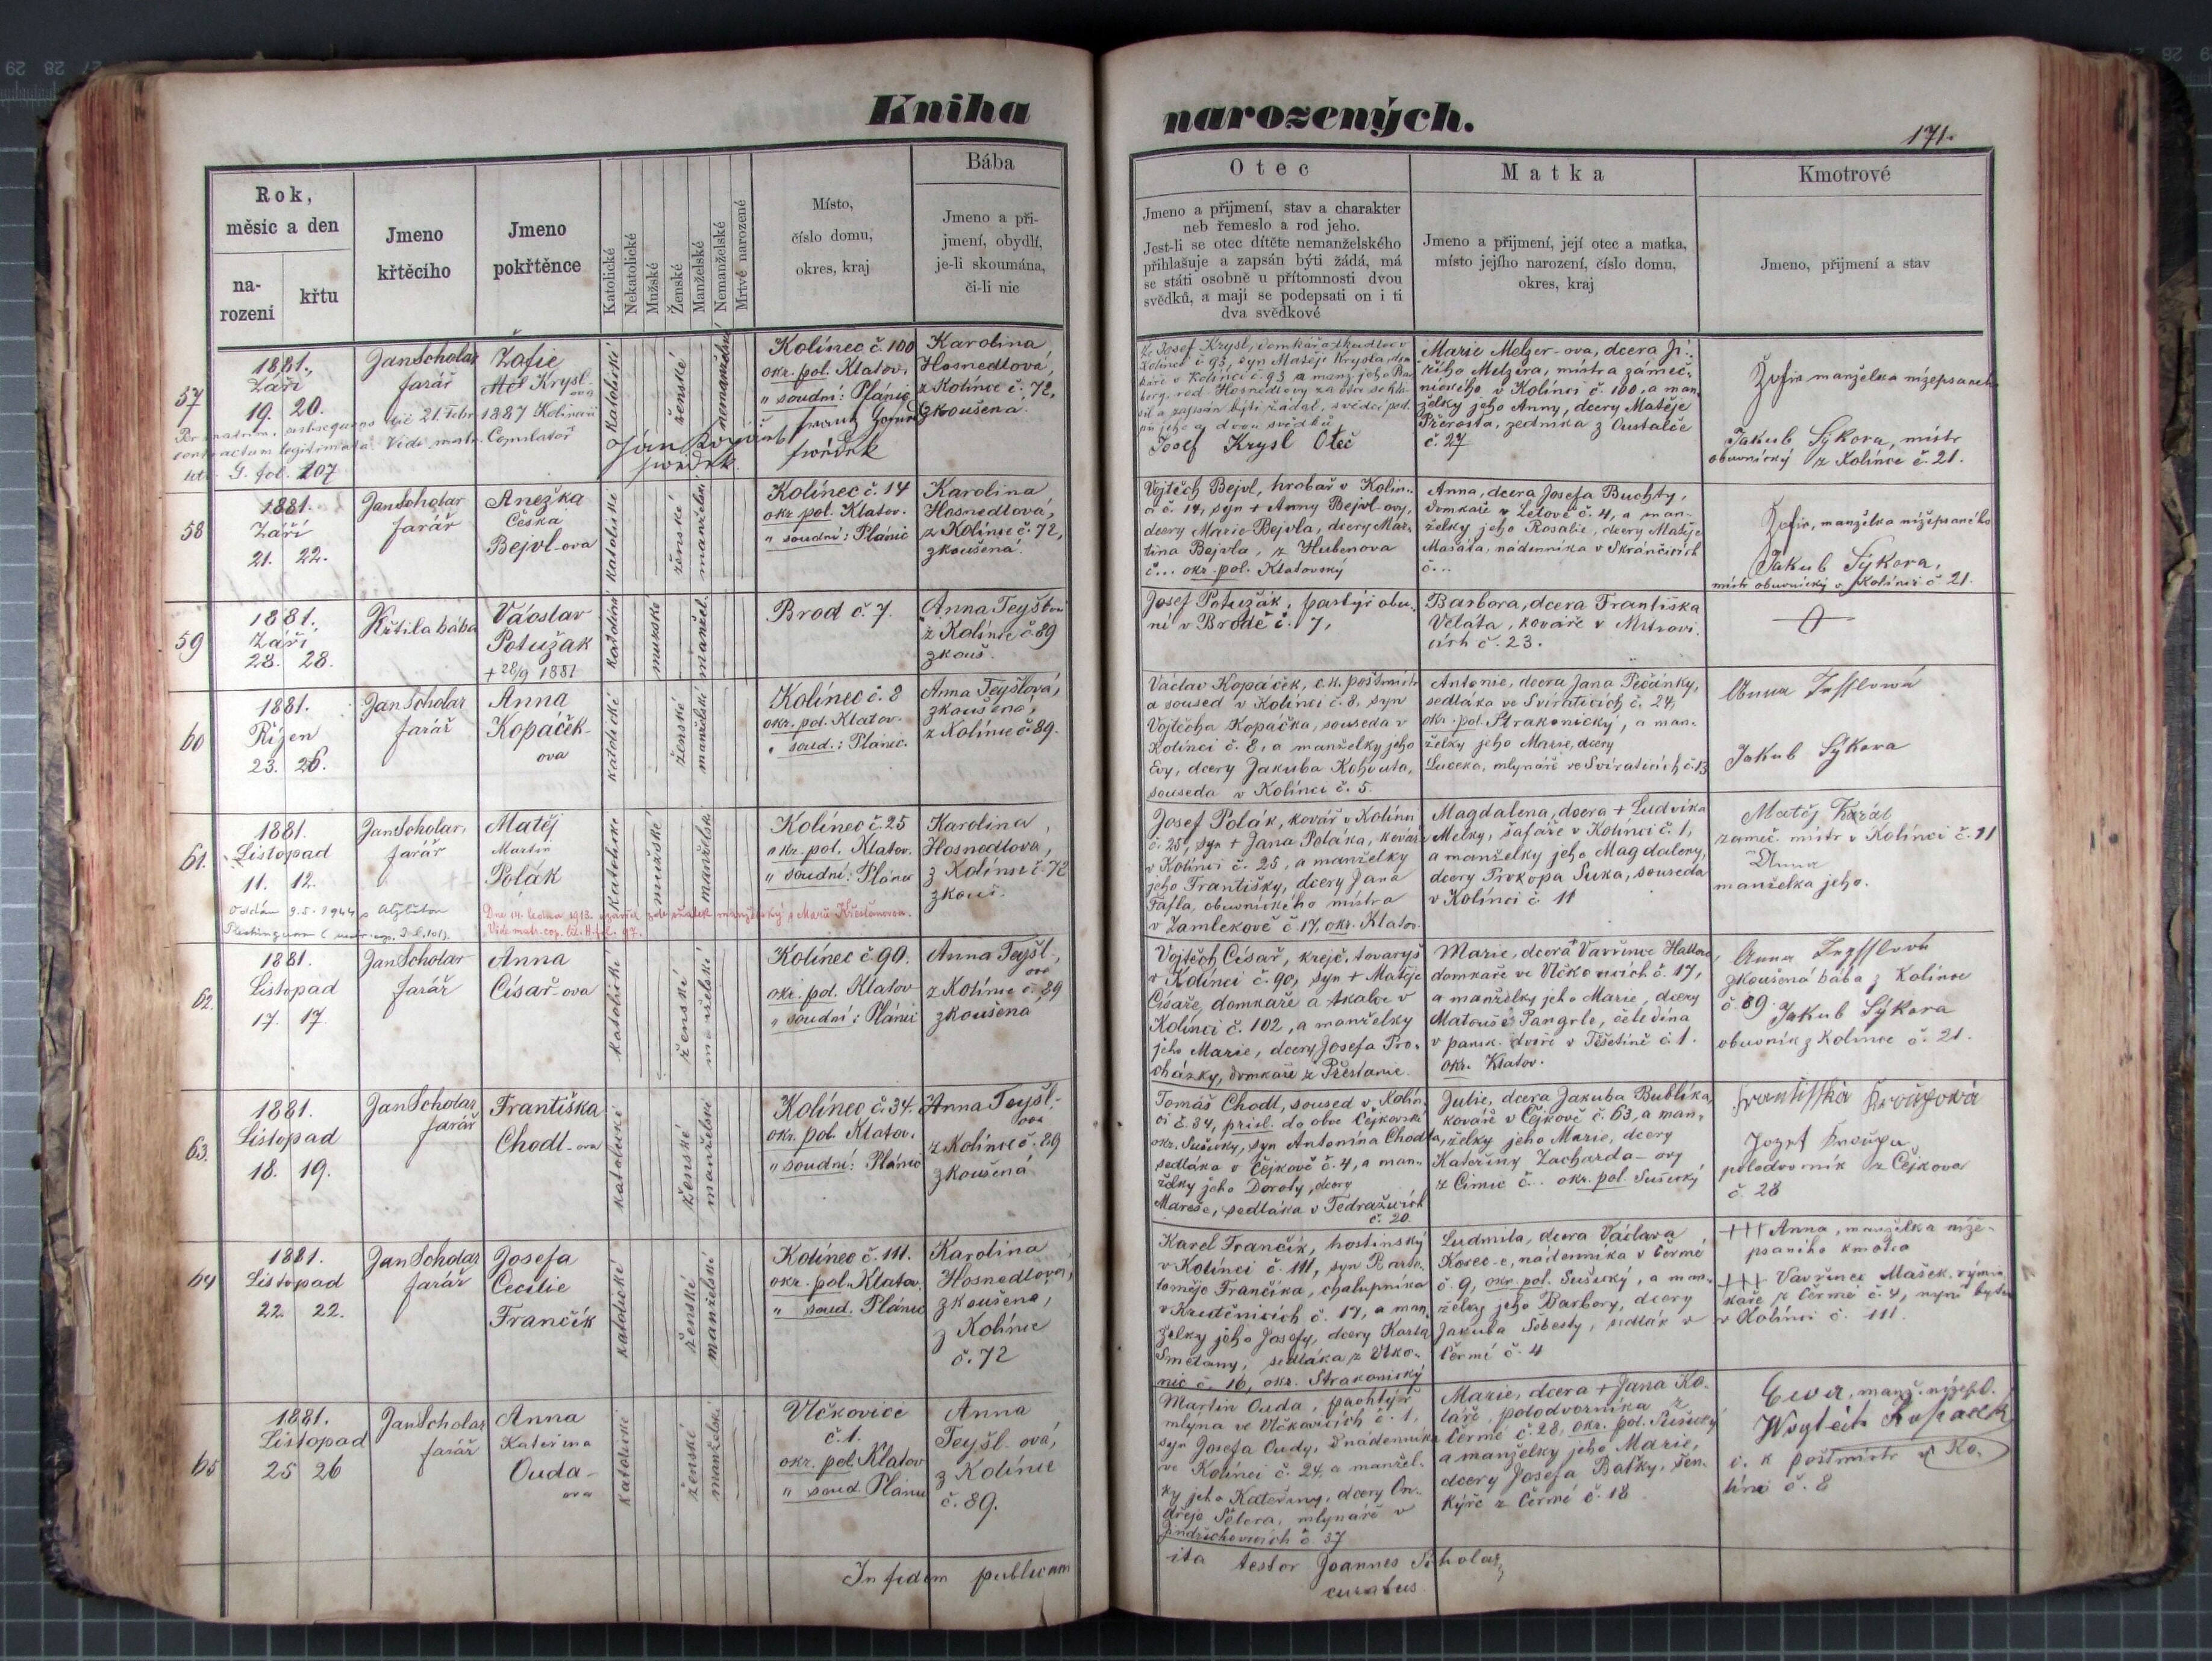 Kniha
narozených.
171.
Rok,
měsíc a den
na-
rozeni
křtu
Jmeno
křtěcího
Jmeno
pokřtěnce
Katolické
Nekatolické
Mužské
Ženské
Manželské
Nemanželské
Mrtvě narozené
Místo,
číslo domu,
okres, kraj
Bába
Jmeno a pří-
jmení, obydlí,
je-li skoumána,
či-li nic
Otec
Jmeno a přijmení, stav a charakter
neb řemeslo a rod jeho.
Jest-li se otec dítěte nemanželského
přihlašuje a zapsán býti žádá, má
se státi osobně u přítomnosti dvou
svědků, a mají se podepsati on i ti
dva svědkové
Matka
Jmeno a přijmení, její otec a matka,
místo jejího narození, číslo domu,
okres, kraj
Kmotrové
Jmeno, přijmení a stav
57
1881.
Září
19. 20.
Jan Scholar
farář
Žofie
Krysl-
ova
katolické
ženské
nemanželské
Kolínec č. 100
okr. pol. Klatov.
" soudní: Plánic
Karolina
Hosnedlová,
z Kolínce č. 72,
zkoušena.
Per matrim. subsequens 21 Febr 1887
contractum legitimata. Vide matr. Copulator
G. fol. 107
Jan
swědek
swědek
Že Josef Krysl, domkář a tkadlec v
Kolínci č 93, syn Matěje Krysla, dom
káře v Kolínci č. 93 a manž. jeho Bar
bory, rod. Hosnedlovy za otce se hlá
sil a zapsán býti žádal, svědčí pod
pis jeho a dvou svědků
Josef Krysl Otec
Marie Melzer-ova, dcera Ji-
řího Melzera, mistra zámeč-
nického v Kolínci č. 100, a man
želky jeho Anny, dcery Matěje
Přerosta, zedníka z
č. 27
Žofie manželka nížepsaného
Jakub Sýkora, mistr
obuvnický z Kolínce č. 21.
58
1881.
Září
21. 22.
Jan Scholar
farář
Anežka
Česká
Bejvl-ova
katolické
ženské
manželské
Kolínec č. 14
okr. pol. Klatov.
" soudní: Plánic
Karolina
Hosnedlová,
z Kolínce č. 72,
zkoušená.
Vojtěch Bejvl, hrobař v Kolín-
ci č. 14, syn + Anny Bejvl-ovy,
dcery Marie Bejvla, dcery Mar-
tina Bejvla, z Hubenova
č... okr. pol. Klatovský
Anna, dcera Josefa Buchty,
domkáře v Letově č. 4, a man-
želky jeho Rosalie, dcery Matěje
Mašáta, nádenníka v
č...
Žofie, manželka nížepsaného
Jakub Sýkora,
mistr obuvnický v Kolínci č 21.
59
1881.
Září
28. 28.
Křtila bába
Václav
Potužak
+ 28/9 1881
katolické
mužské
manžel.
Brod č. 7.
Anna Teyšlova
z Kolínce č. 89
zkouš.
Josef Potužák, pastýř obe-
ní v Brodě č. 7,
Barbora, dcera Františka
Veláta, kováře v Mitrovi-
cích č. 23.
60
1881.
Říjen
23. 26.
Jan Scholar
farář
Anna
Kopáček-
ova
katolické
ženské
manželské
Kolínec č. 8
okr. pol. Klatov.
" soud.: Plánic.
Anna Teyšlová,
zkoušena,
z Kolínce č. 89.
Václav Kopáček, c. k. poštmistr
a soused v Kolínci č. 8, syn
Vojtěcha Kopáčka, souseda v
Kolínci č. 8, a manželky jeho
Evy, dcery Jakuba Kohouta,
souseda v Kolínci č. 5.
Antonie, dcera Jana Pečánky,
sedláka ve Sviraticích č. 24,
okr. pol. Strakonický, a man-
želky jeho Marie, dcery
Luceka, mlynáře ve Sviraticích č. 13
Anna
Jakub Sýkora
61.
1881.
Listopad
11. 12.
Jan Scholar,
farář
Matěj
Martin
Polák
katolické
mužské
manželské
Kolínec č. 25
okr. pol. Klatov.
" soudní: Plánic
Karolina
Hosnedlova,
z Kolínce č. 72
zkouš.
oddán 9.5.1944 s Alžbětou
Dne 14. ledna 1913. uzavřel zde sňatek manželský s Marií Křesťanovou.
Vide matr. cop. lit. H. fol. 97.
Josef Polák, kovář v Kolínci
č. 25, syn + Jana Poláka, kováře
v Kolínci č. 25, a manželky
jeho Františky, dcery Jana
Fafla, obuvnického mistra
v Zamlekově č. 17, okr. Klatov.
Magdalena, dcera + Ludvíka
Melky, šafáře v Kolínci č. 1,
a manželky jeho Magdaleny,
dcery Prokopa Suka, souseda
v Kolínci č 11
Matěj Král
zameč. mistr v Kolínci č. 11
Anna
manželka jeho.
62.
1881.
Listopad
17. 17.
Jan Scholar
farář
Anna
Císař-ova
katolické
ženské
manželské
Kolínec č. 90.
okr. pol. Klatov
" soudní: Plánic
Anna Teyšl-
ova
z Kolínce č. 89
zkoušena
Vojtěch Císař, krejč. tovaryš
v Kolínci č. 90, syn + Matěje
Císaře, domkáře a tkalce v
Kolínci č. 102, a manželky
jeho Marie, dcery Josefa Pro-
cházky, domkáře z Přestanic
Marie, dcera + Vavřince
domkáře ve Vlčkovicích č. 17,
a manželky jeho Marie, dcery
Matouše Pangrle, čeledína
v pansk. dvoře v Těšetině č. 1.
okr. Klatov.
Anna
zkoušená bába z Kolínce
č. 89. Jakub Sýkora
obuvník z Kolínce č. 21.
63.
1881.
Listopad
18. 19.
Jan Scholar
farář
Františka
Chodl-ova
katolické
ženské
manželské
Kolínec č. 34.
okr. pol. Klatov.
" soudní: Plánic
Anna Teyšl-
ova
z Kolínce č. 89
zkoušená
Tomáš Chodl, soused v Kolín-
ci č. 34, přísl. do obce Čejkovské
okr. Sušický, syn Antonína Chodla,
sedláka v Čejkově č. 4, a man-
želky jeho Doroty, dcery
Mareše, sedláka v Tedražicích
č. 20.
Julie, dcera Jakuba Bublíka,
kováře v Čejkově č. 63, a man-
želky jeho Marie, dcery
Kateřiny Zacharda-ovy
z Čimic č... okr. pol. Sušický
Frantisska Kroupová
Jozef Kroupa
polodvorník z Čejkova
č. 28
64
1881.
Listopad
22. 22.
Jan Scholar
farář
Josefa
Cecilie
Frančík
katolické
ženské
manželské
Kolínec č. 111.
okr. pol. Klatov.
" soud. Plánic
Karolina
Hosnedlova,
zkoušena,
z Kolínce
č. 72
Karel Frančík, hostinský
v Kolínci č. 111, syn Barto-
loměje Frančíka, chalupníka
v č. 17, a man-
želky jeho Josefy, dcery Karla
Smetany, sedláka z
nic č. 16, okr. Strakonický
Ludmila, dcera Václava
Kosec-e, nádenníka v Černé
č. 9, okr. pol. Sušický, a man-
želky jeho Barbory, dcery
Jakuba Šebesty, sedlák v
Černé č. 4
+++ Anna, manželka níže-
psaného kmotra
+++ Vavřinec Mašek,
kaře z Černé č. 4, nyní bytem
v Kolínci č. 111.
65
1881.
Listopad
25 26
Jan Scholar
farář
Anna
Kateřina
Ouda-
ova
katolické
ženské
manželské
Vlčkovice
č. 1.
okr. pol. Klatov
" soud. Plánic
Anna
Teyšl-ová,
z Kolínce
č. 89.
Martin Ouda, pachtýř
mlýna ve Vlčkovicích č. 1,
syn Josefa Oudy, nádenníka
ve Kolínci č. 24, a manžel-
ky jeho Kateřiny, dcery On-
dřeje mlynáře v
Jindřichovicích č. 37
Marie, dcera + Jana Ko-
láře, polodvorníka z
Černé č. 28, okr. pol. Sušický
a manželky jeho Marie,
dcery Josefa Baťky, šen-
kýře z Černé č. 18
Ewa, manž. nížeps.
Wogtěch Kopaček
c. k. poštmistr v Ko-
línci č. 8
In fidem publicam
ita testor Joannes Scholar,
curatus.